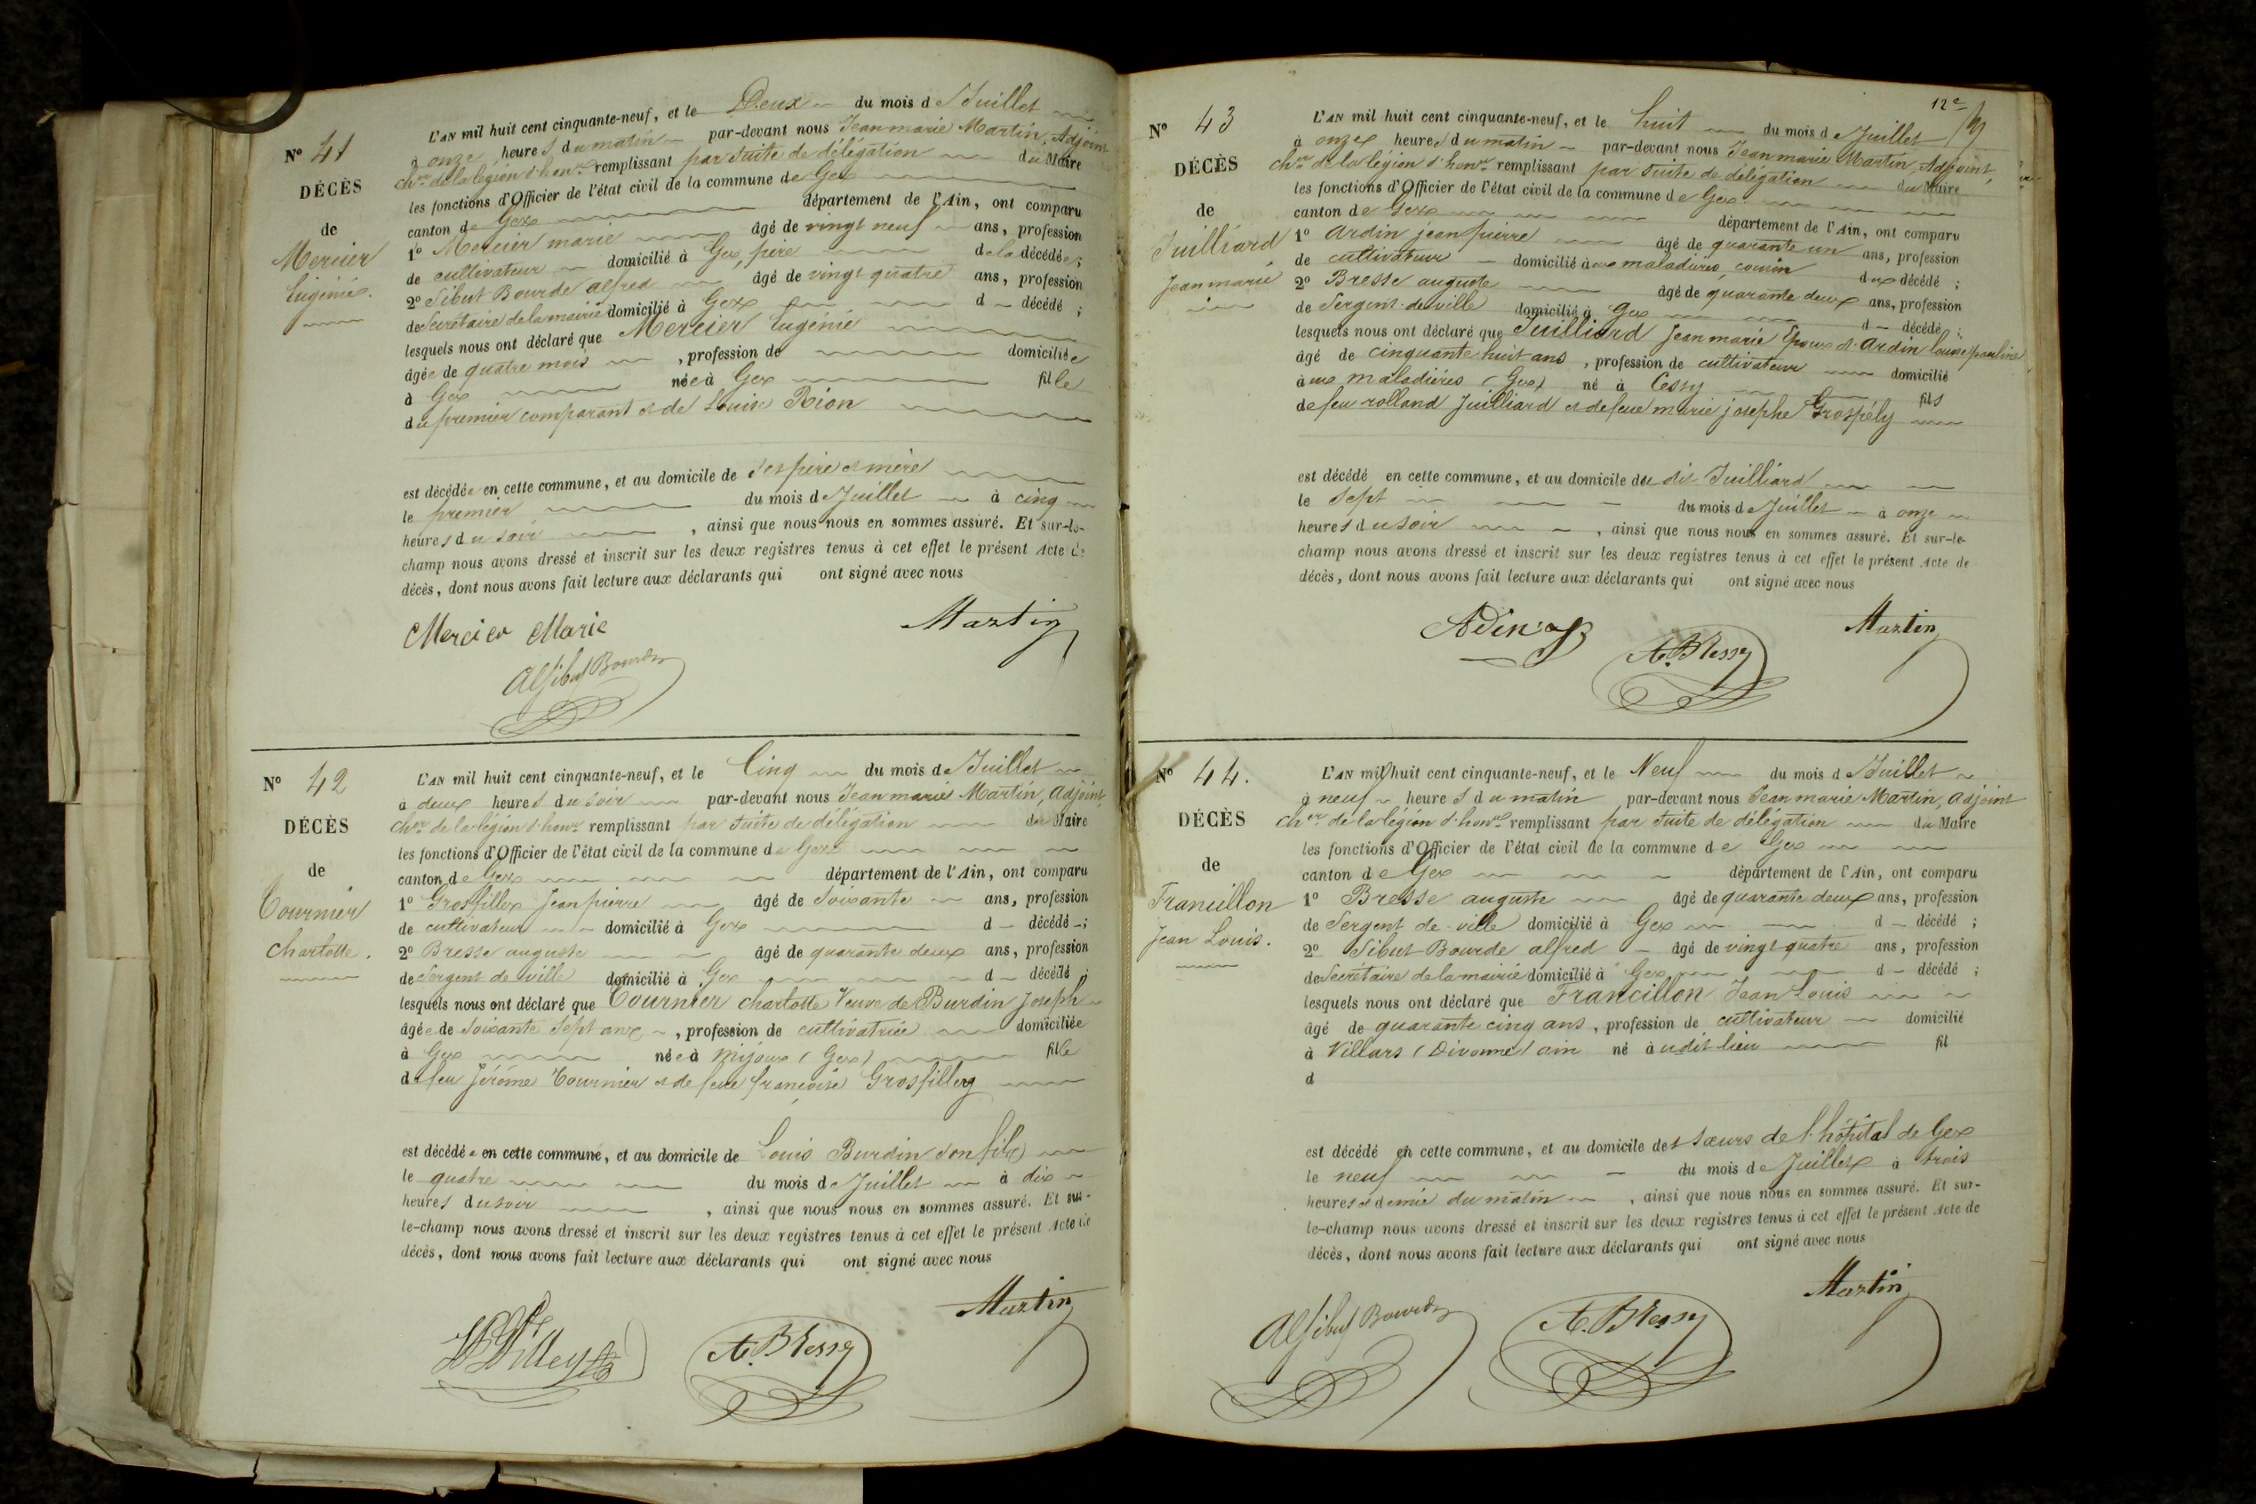 N° 41
DÉCÈS
de
Mercier
Eugénie.
L'AN mil huit cent cinquante-neuf, et le Deux du mois de Juillet
à onze heures du matin par-devant nous Jean marie Martin, Adjoint
chер de la légion d'honr remplissant par suite de délégation du Maire
les fonctions d'Officier de l'état civil de la commune de Gex
canton de Gex département de l'Ain, ont comparu
1° Mercier marie âgé de vingt neuf ans, profession
de cultivateur domicilié à Gex, père de la décédée;
2° Sibut Bourde alfred âgé de vingt quatre ans, profession
de Secrétaire de la mairie domicilié à Gex d décédé ;
lesquels nous ont déclaré que Mercier Eugénie
âgée de quatre mois , profession de domiciliée
à Gex née à Gex fille
du premier comparant et de Louise Rion
est décédée en cette commune, et au domicile de ses père et mère
le premier du mois de Juillet à cinq
heures du soir , ainsi que nous nous en sommes assuré. Et sur-le-
champ nous avons dressé et inscrit sur les deux registres tenus à cet effet le présent Acte de
décès, dont nous avons fait lecture aux déclarants qui ont signé avec nous
Mercier Marie Martin
Alf Sibut Bourde
N° 42
DÉCÈS
de
Tournier
Charlotte.
L'AN mil huit cent cinquante-neuf, et le Cinq du mois de Juillet
à deux heures du soir par-devant nous Jean marie Martin, Adjoint
cher de la légion d'honr remplissant par suite de délégation du Maire
les fonctions d'Officier de l'état civil de la commune de Gex
canton de Gex département de l'Ain, ont comparu
1° Grosfillex Jean pierre âgé de Soixante ans, profession
de cultivateur domicilié à Gex d décédé ;
2° Bresse auguste âgé de quarante deux ans, profession
de Sergent de ville domicilié à Gex d décédé ;
lesquels nous ont déclaré que Tournier Charlotte Veuve de Burdin Joseph
âgée de Soixante Sept ans , profession de cultivatrice domiciliée
à Gex née à Mijoux (Gex) fille
de feu Jérôme Tournier et de feue françoise Grosfilley
est décédée en cette commune, et au domicile de Louis Burdin son fils
le quatre du mois de Juillet à dix
heures du soir , ainsi que nous nous en sommes assuré. Et sur-
le-champ nous avons dressé et inscrit sur les deux registres tenus à cet effet le présent Acte de
décès, dont nous avons fait lecture aux déclarants qui ont signé avec nous
A. Bresse Martin
12e
N° 43
DÉCÈS
de
Juilliard
Jean marie
L'AN mil huit cent cinquante-neuf, et le huit du mois de Juillet
à onze heures du matin par-devant nous Jean marie Martin, Adjoint,
cher de la légion d'honr remplissant par suite de délégation du Maire
les fonctions d'Officier de l'état civil de la commune de Gex
canton de Gex département de l'Ain, ont comparu
1° Ardin jean pierre âgé de quarante un ans, profession
de cultivateur domicilié aux maladières, cousin du décédé ;
2° Bresse auguste âgé de quarante deux ans, profession
de Sergent de ville domicilié à Gex d décédé ;
lesquels nous ont déclaré que Juilliard Jean marie Epoux de Ardin louise pauline
âgé de cinquante huit ans , profession de cultivateur domicilié
aux maladières (Gex) né à Cessy fils
de feu rolland Juilliard et de feue marie josephe Grospély
est décédé en cette commune, et au domicile du dit Juilliard
le Sept du mois de Juillet à onze
heures du soir , ainsi que nous nous en sommes assuré. Et sur-le-
champ nous avons dressé et inscrit sur les deux registres tenus à cet effet le présent Acte de
décès, dont nous avons fait lecture aux déclarants qui ont signé avec nous
A. Bresse Martin
N° 44.
DÉCÈS
de
Francillon
Jean Louis.
L'AN mil huit cent cinquante-neuf, et le Neuf du mois de Juillet
à neuf heures du matin par-devant nous Jean marie Martin, adjoint
cher de la légion d'honr remplissant par suite de délégation du Maire
les fonctions d'Officier de l'état civil de la commune de Gex
canton de Gex département de l'Ain, ont comparu
1° Bresse auguste âgé de quarante deux ans, profession
de Sergent de ville domicilié à Gex d décédé ;
2° Sibut Bourde alfred âgé de vingt quatre ans, profession
de Secrétaire de la mairie domicilié à Gex d décédé ;
lesquels nous ont déclaré que Francillon Jean Louis
âgé de quarante cinq ans , profession de cultivateur domicilié
à Villars (Divonne) ain né au dit lieu fil
d
est décédé en cette commune, et au domicile des sœurs de l'hôpital de Gex
le neuf du mois de Juillet à trois
heures et demie du matin , ainsi que nous nous en sommes assuré. Et sur-
le-champ nous avons dressé et inscrit sur les deux registres tenus à cet effet le présent Acte de
décès, dont nous avons fait lecture aux déclarants qui ont signé avec nous
Alf Sibut Bourde A. Bresse Martin